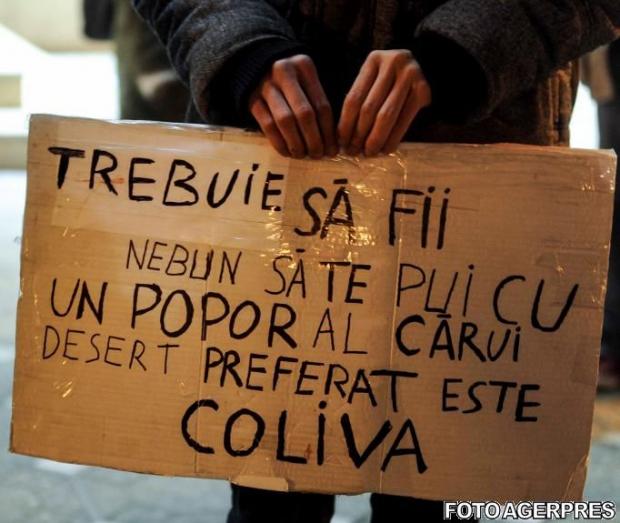 TREBUIE SĂ FII
NEBUN SĂ TE PUI CU
UN POPOR AL CĂRUI
DESERT PREFERAT ESTE
COLIVA
FOTO AGERPRES